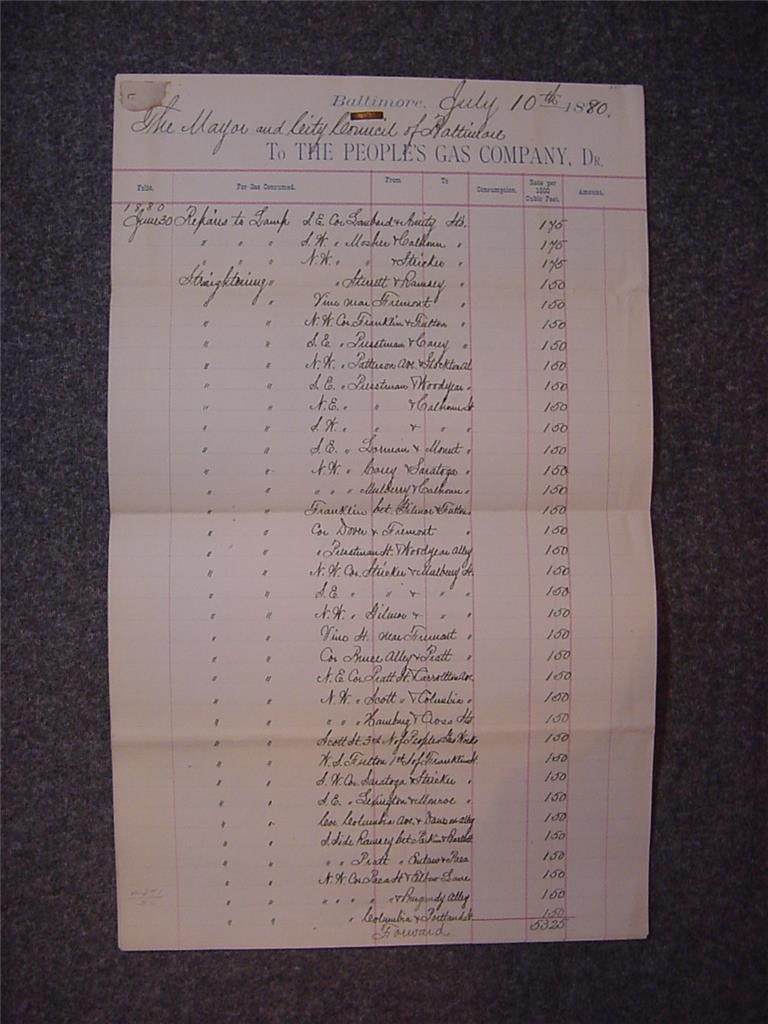 Baltimore, July 10th 1880.
The Mayor and City Council of Baltimore
To THE PEOPLE'S GAS COMPANY, Dr.
Folio. For Gas Consumed. From To Consumption. Rate per 1000 Cubic Feet. Amount.
1880
June 30 Repairs to Lamp S.E. Cor Lombard & Amity Sts. 175
" " " S.W. " Mosher & Calhoun " 175
" " " N.W. " " & Stricker " 175
Straightening " " Sterrett & Ramsey " 150
" " Vine near Fremont " 150
" " N.W. Cor Franklin & Fulton " 150
" " S.E. " Presstman & Carey " 150
" " N.W. " Patterson Ave & Stockton Al 150
" " S.E. " Presstman & Woodyear " 150
" " N.E. " " & Calhoun St 150
" " S.W. " " & " " 150
" " S.E. " Lorman & Mount " 150
" " N.W. " Carey & Saratoga " 150
" " " " " Mulberry & Calhoun " 150
" " Franklin bet. Gilmor & Fulton " 150
" " Cor Dover & Fremont " 150
" " " Presstman St. & Woodyear Alley 150
" " N.W. Cor Stricker & Mulberry St. 150
" " S.E. " " & " " 150
" " N.W. " Gilmor & " " 150
" " Vine St. near Fremont " 150
" " Cor Bruce Alley & Pratt " 150
" " N.E. Cor Pratt St. & Carrollton Ave. 150
" " N.W. " Scott " & Columbia " 150
" " " " " Hamburg & Cross Sts 150
" " Scott St. 3rd N of Peoples Gas Works 150
" " W.S. Fulton 1st S of Franklin St. 150
" " S.W. Cor Saratoga & Stricker " 150
" " S.E. " Lexington & Monroe " 150
" " Cor Columbia Ave. & Dawson alley 150
" " S Side Ramsey bet Parkin & 150
" " " " Pratt " Eutaw & Paca 150
" " N.W. Cor Paca St & Elbow Lane 150
" " " " " " & Burgundy Alley 150
" " " Columbia & Portland St 150
Forward 5325